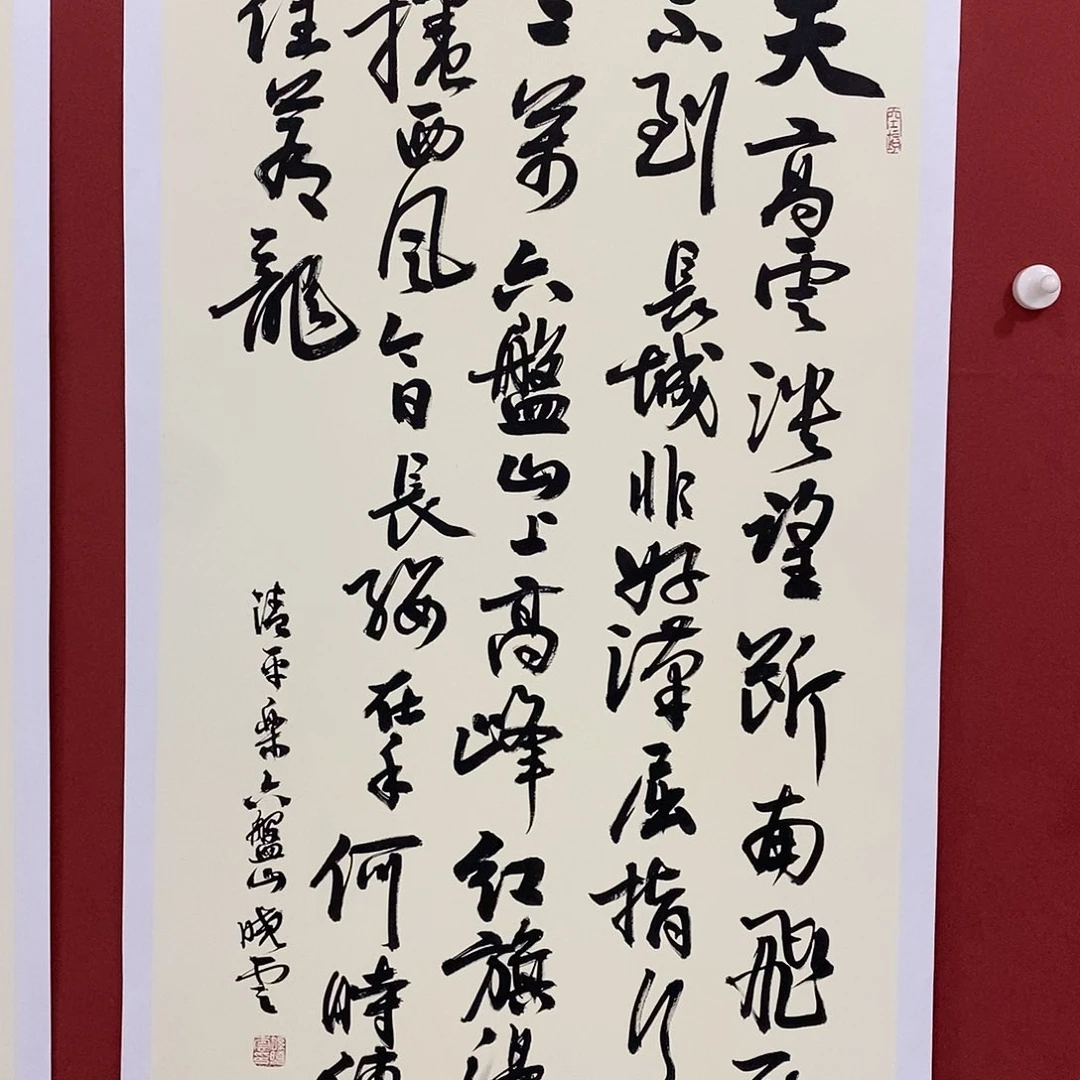 天高雲淡望断南飛
不到長城非好漢屈指行
二萬六盤山上高峰紅旗漫
捲西風今日長纓在手何時縛
住蒼龍
清平樂六盤山曉雲